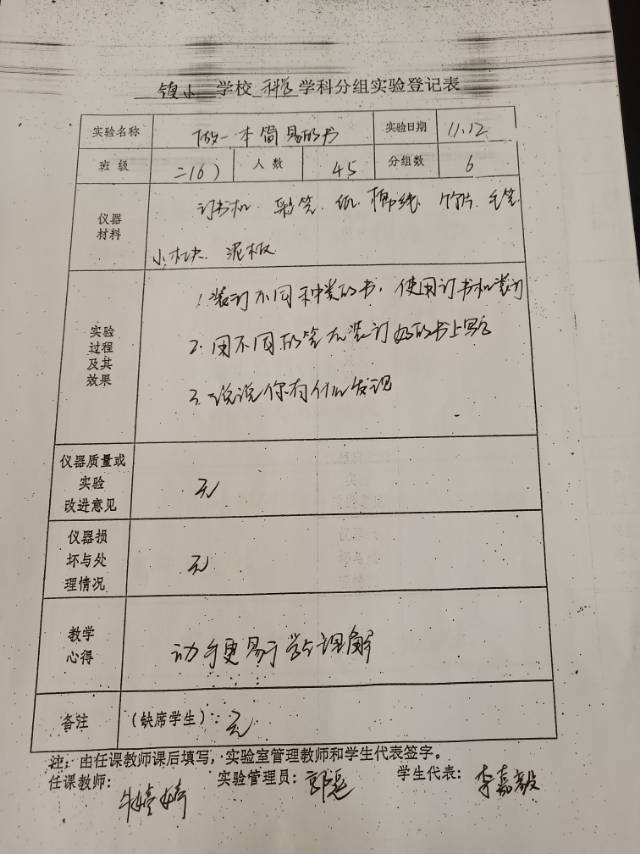 镇小 学校 科学 学科分组实验登记表
实验名称 做一本简易的书 实验日期 11.12
班级 二(6) 人数 45 分组数 6
仪器材料
订书机. 彩笔. 纸. 棉线. 竹片. 毛笔
小木块. 泥板
实验过程及其效果
1.装订不同种类的书, 使用订书机装订
2.用不同的笔在装订好的书上写字
3.说说你有什么发现
仪器质量或实验改进意见 无
仪器损坏与处理情况 无
教学心得 动手更易于学生理解
备注 (缺席学生): 无
注: 由任课教师课后填写, 实验室管理教师和学生代表签字。
任课教师: 实验管理员: 学生代表: 李嘉毅